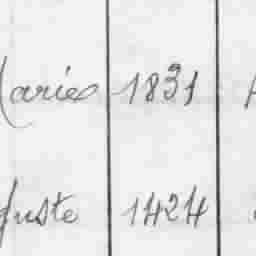 Marie 1831
guste 1424